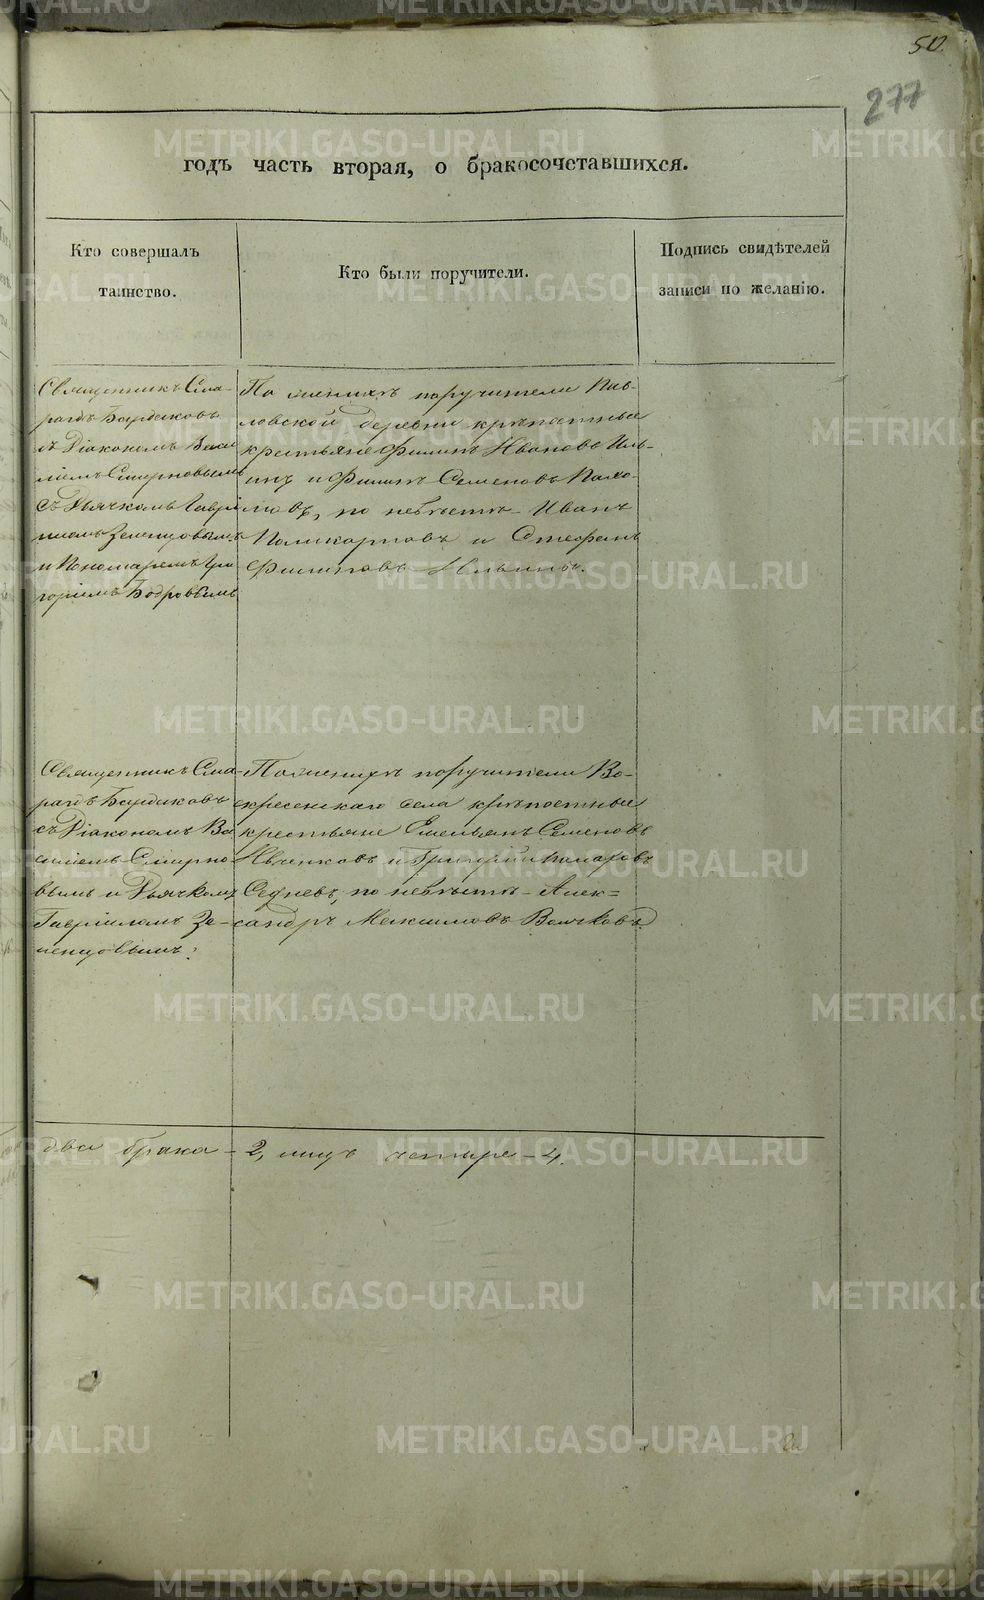 50.
277
годъ часть вторая, о бракосочетавшихся.
Кто совершалъ
таинство.
Кто были поручители.
Подпись свидѣтелей
записи по желанію.
Священникъ Сма-
рагдъ Бардаковъ
съ Діакономъ Васи
ліемъ Смирновымъ
съ Дьячкомъ Гаврі
иломъ Зеленцовымъ
и Пономаремъ Гри
горіемъ Бобровымъ
По женихѣ поручители Пав-
ловской деревни крѣпостные
крестьяне Филипъ Ивановъ Иль-
инъ и Филипъ Семеновъ Пахо-
мовъ, по невѣстѣ Иванъ
Поликарповъ и Стефанъ
Филиповъ Ильины.
Священникъ Сма-
рагдъ Бардаковъ
съ Діакономъ Ва
силіемъ Смирно
вымъ и Дьячкомъ
Гавріиломъ Зе-
ленцовымъ.
По женихѣ поручители Во-
скресенскаго села крѣпостные
крестьяне Емельянъ Семеновъ
Ивченковъ и Григорій
по невѣстѣ Алек=
сандръ Максимовъ Волчковъ
два брака - 2, лицъ четыре - 4.
METRIKI.GASO-URAL.RU